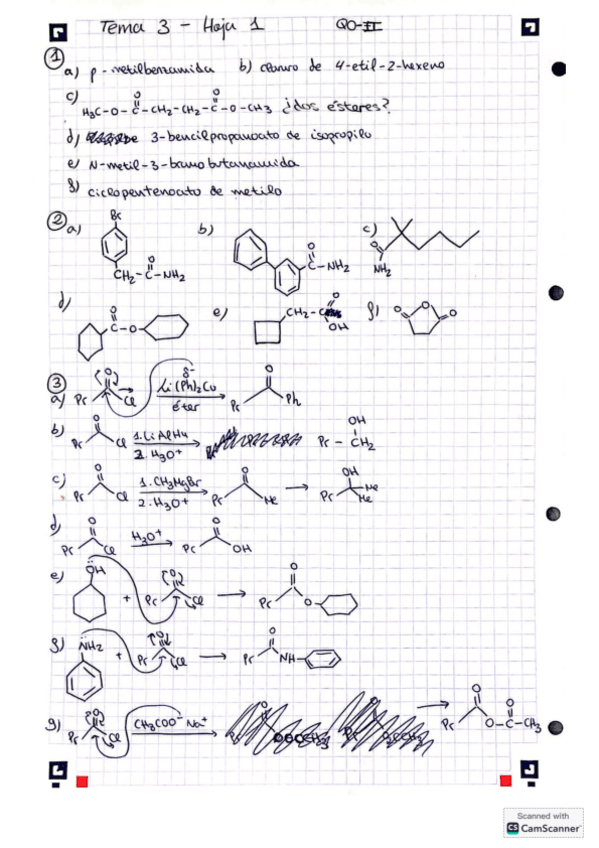 Tema 3 - Hoja 1 QO-II
1
a) p-metilbenzamida b) cloruro de 4-etil-2-hexeno
c) H3C-O-C-CH2-CH2-C-O-CH3 ¿dos ésteres?
O O
d) 3-bencilpropanoato de isopropilo
e) N-metil-3-bromobutanamida
f) ciclopentenoato de metilo
2 a) Br CH2-C-NH2 O b) C-NH2 O c) O NH2
d) O C-O e) CH2-C O OH f) O O O
3
a) Pr O Cl Li(Ph)2Cu δ- éter Pr O Ph
b) Pr O Cl 1. LiAlH4 2. H3O+ Pr-CH2 OH
c) Pr O Cl 1. CH3MgBr 2. H3O+ Pr O Me Pr OH Me Me
d) Pr O Cl H3O+ Pr O OH
e) OH + Pr O Cl Pr O O
f) NH2 + Pr O Cl Pr O NH
g) Pr O Cl CH3COO- Na+ Pr O O-C-CH3 O
Scanned with
CS CamScanner